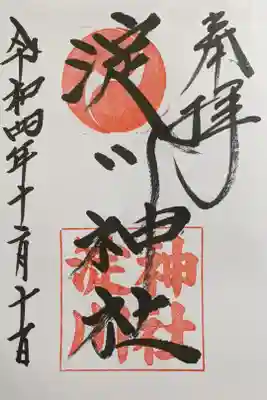 奉拝
淀川神社
神社
淀川
令和四年十二月十日